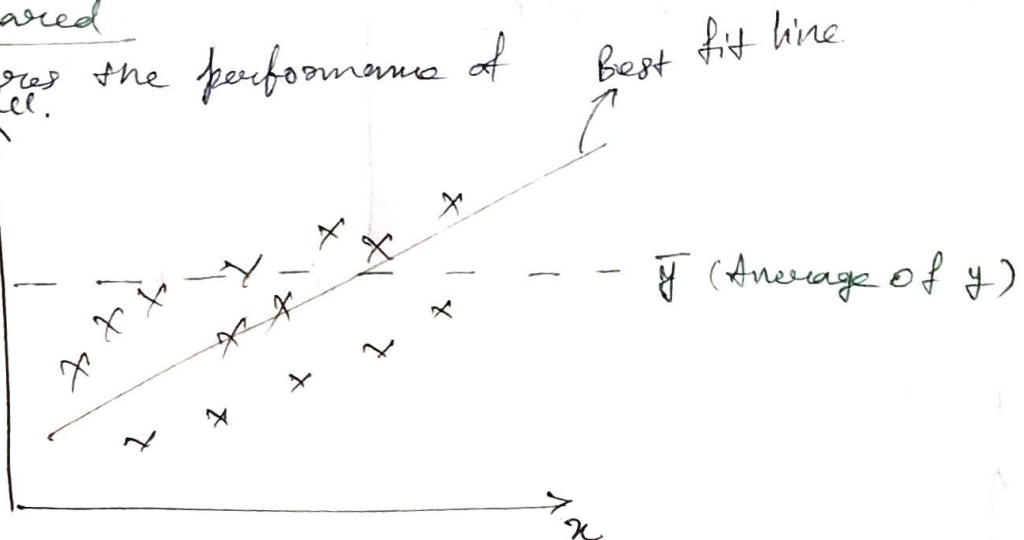 ared
res the performance of
Best fit line
ȳ (Average of y)
x